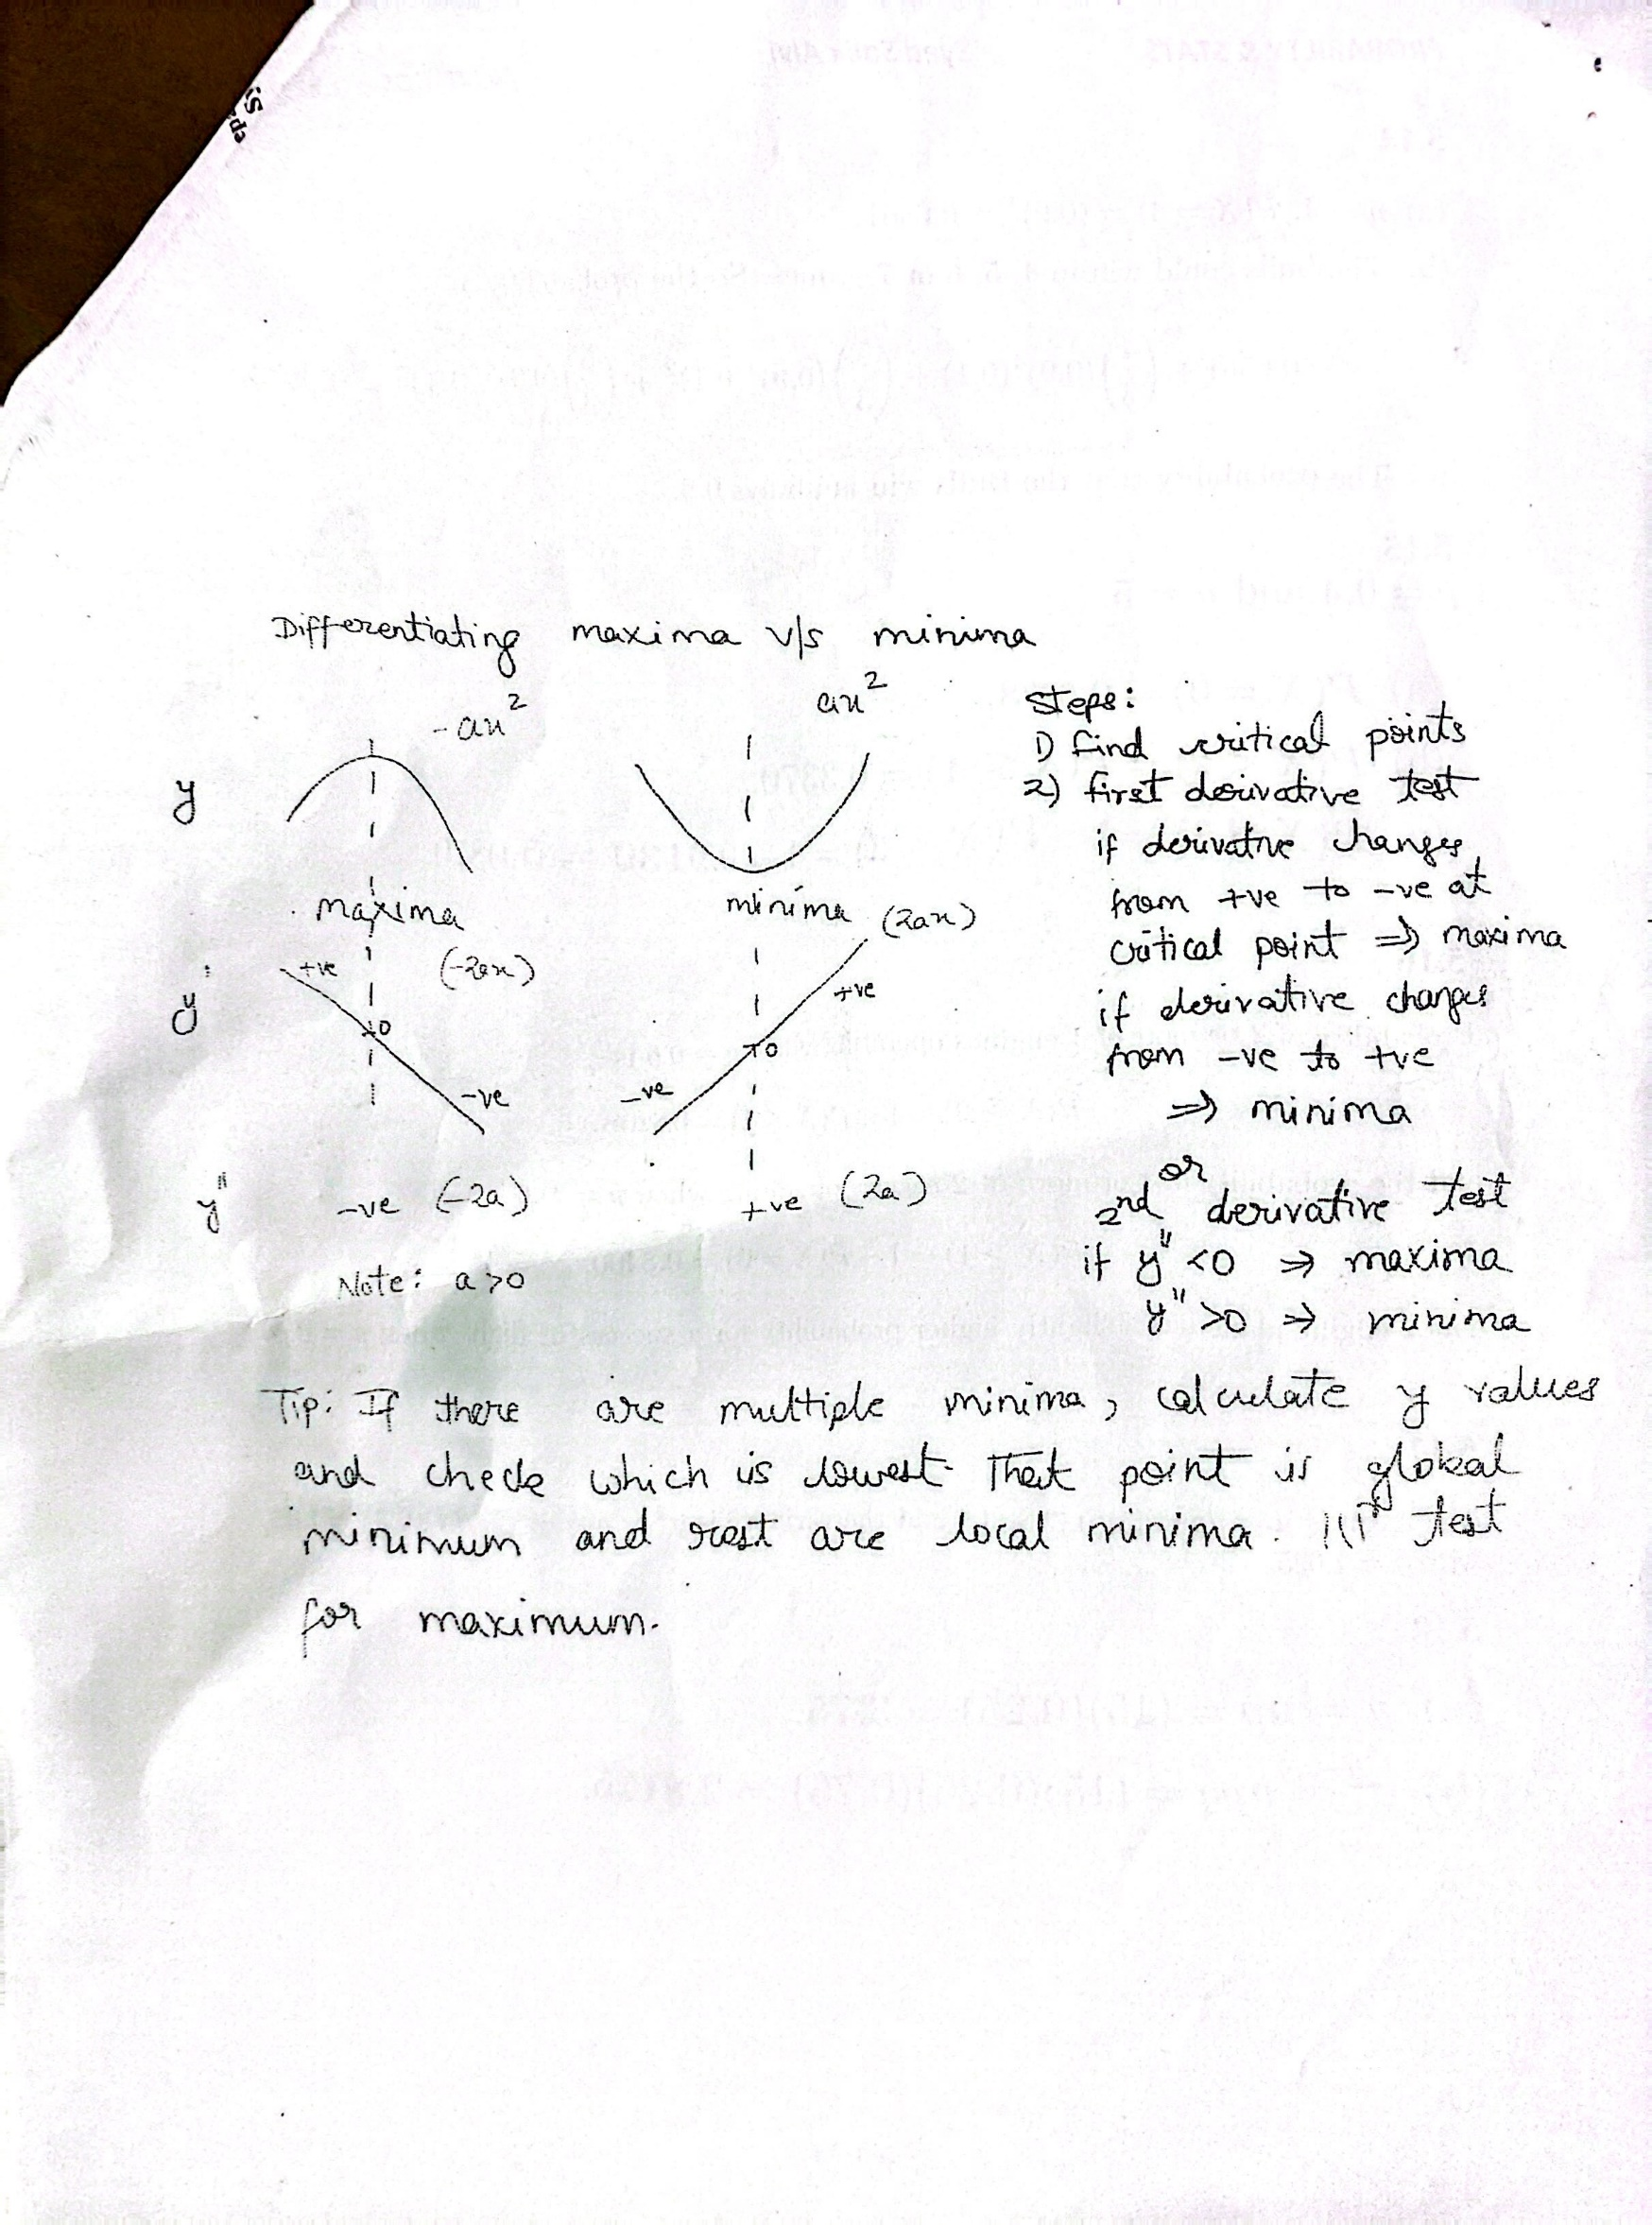 Differentiating maxima v/s minima
-ax²
ax²
y
maxima
minima
y'
+ve
(-2ax)
0
-ve
(2ax)
+ve
0
-ve
y"
-ve (-2a)
+ve (2a)
Note: a>0
Steps:
1) find critical points
2) first derivative test
if derivative changes
from +ve to -ve at
critical point ⇒ maxima
if derivative changes
from -ve to +ve
⇒ minima
or
2nd derivative test
if y" <0 ⇒ maxima
y" >0 ⇒ minima
Tip: If there are multiple minima, calculate y values
and check which is lowest. That point is global
minimum and rest are local minima. |||ᵗʰ test
for maximum.